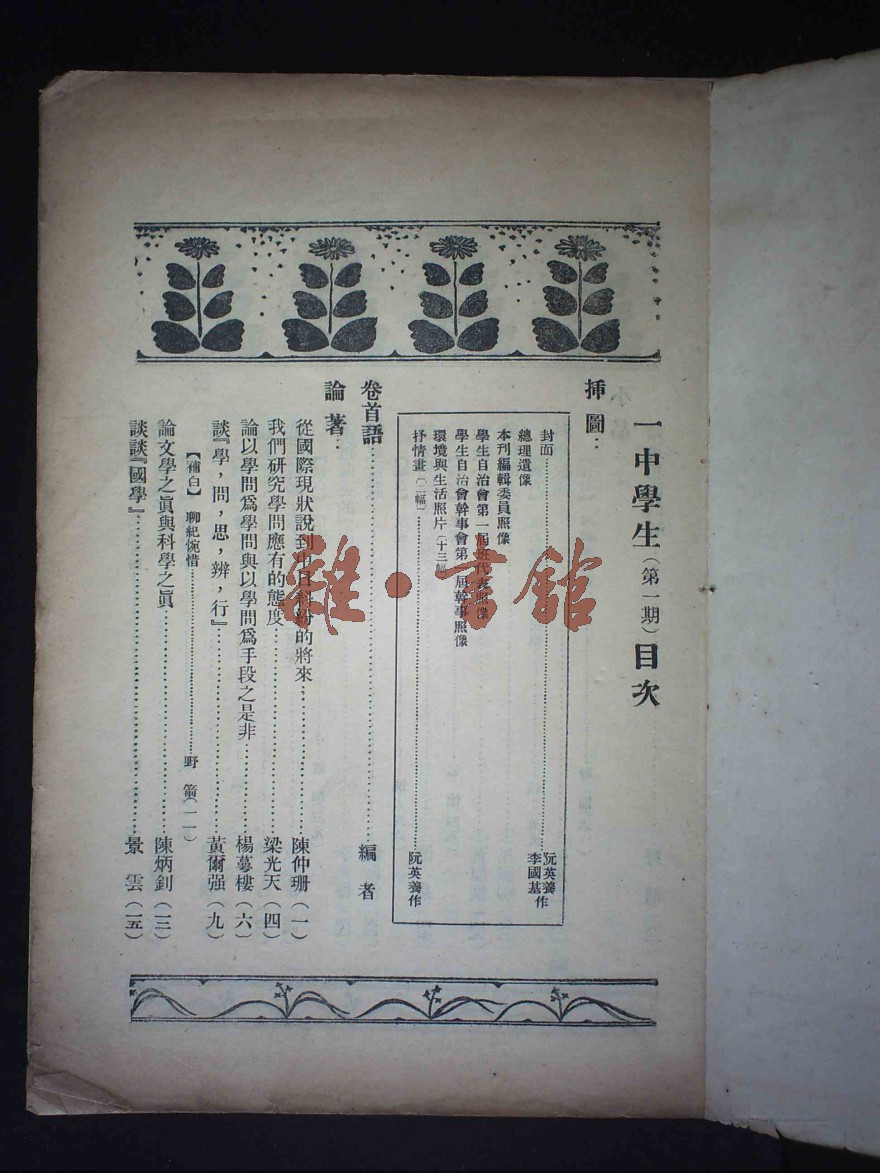 一中學生（第一期）目次
插圖：
封面……阮英養 李國基作
總理遺像
本刊編輯委員照像
學生自治會第一屆班代表照像
學生自治會幹事會第一屆幹事照像
環境與生活照片（十三幅）
抒情畫（二幅）……阮英養作
卷首語……編者
論著：
從國際現狀說到中日糾紛的將來……陳仲珊（一）
我們研究學問應有的態度……梁光天（四）
論以學問爲學問與以學問爲手段之是非……楊蕚樓（六）
談『學，問，思，辨，行』……黃爾强（九）
【補白】聊紀惋惜……野（一一）
論文學之眞與科學之眞……陳炳釗（一三）
談談『國學』……景雲（一五）
雜·書館